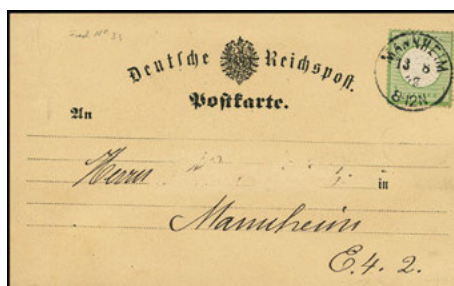 Deutsche Reichspost.
Postkarte.
MANNHEIM
13 8
8-12N
An
Herrn
in
Mannheim
E. 4. 2.